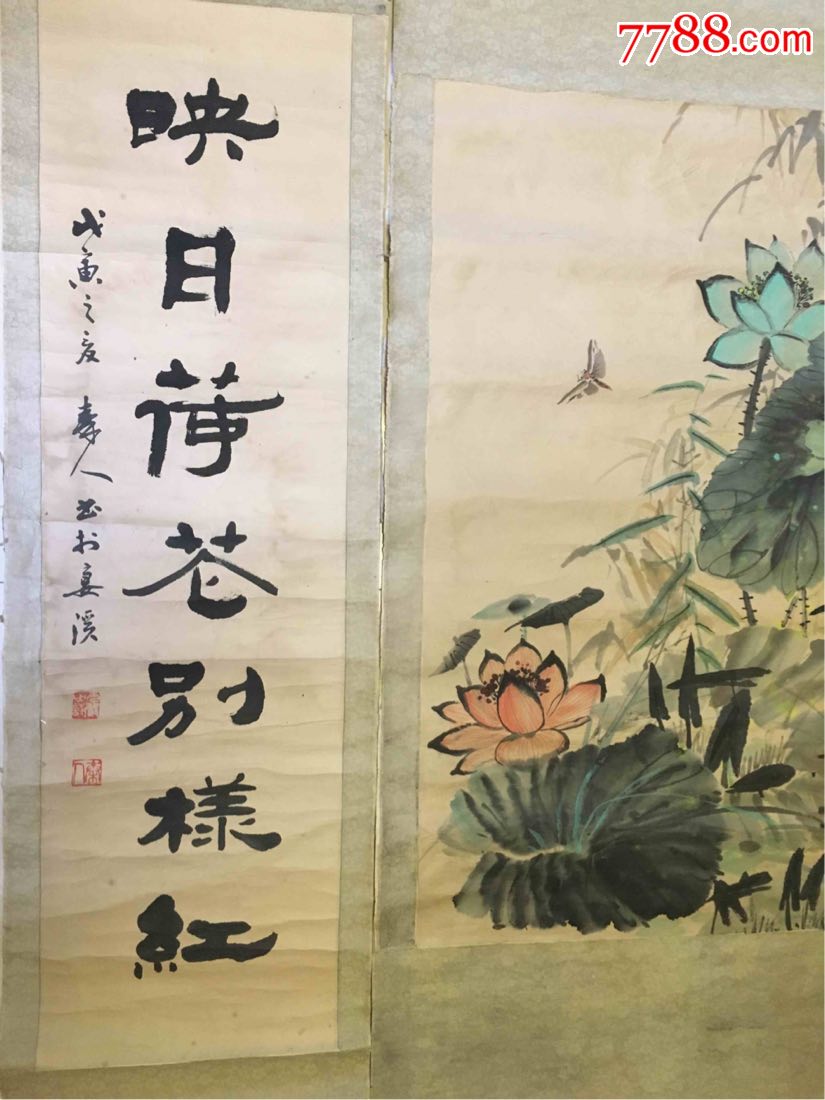 7788.com
映日荷花别樣紅
戊寅之夏 寿人书於宴溪